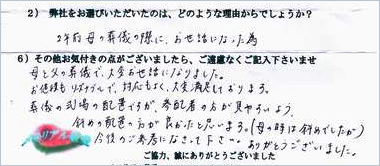 2） 弊社をお選びいただいたのは、どのような理由からでしょうか？
2年前母の葬儀の際に、お世話になった為
6）その他お気付きの点がございましたら、ご遠慮なくご記入下さいませ
母と父の葬儀で、大変お世話になりました。
お値段もリーズナブルで、対応もよく、大変満足しております。
葬儀の式場の配置ですが、参配者の方が見やすいよう
斜めの配置の方が良かったと思います。（母の時は斜めでしたが）
今後のご参考になさって下さい。ありがとうございました。
ご協力、誠にありがとうございました